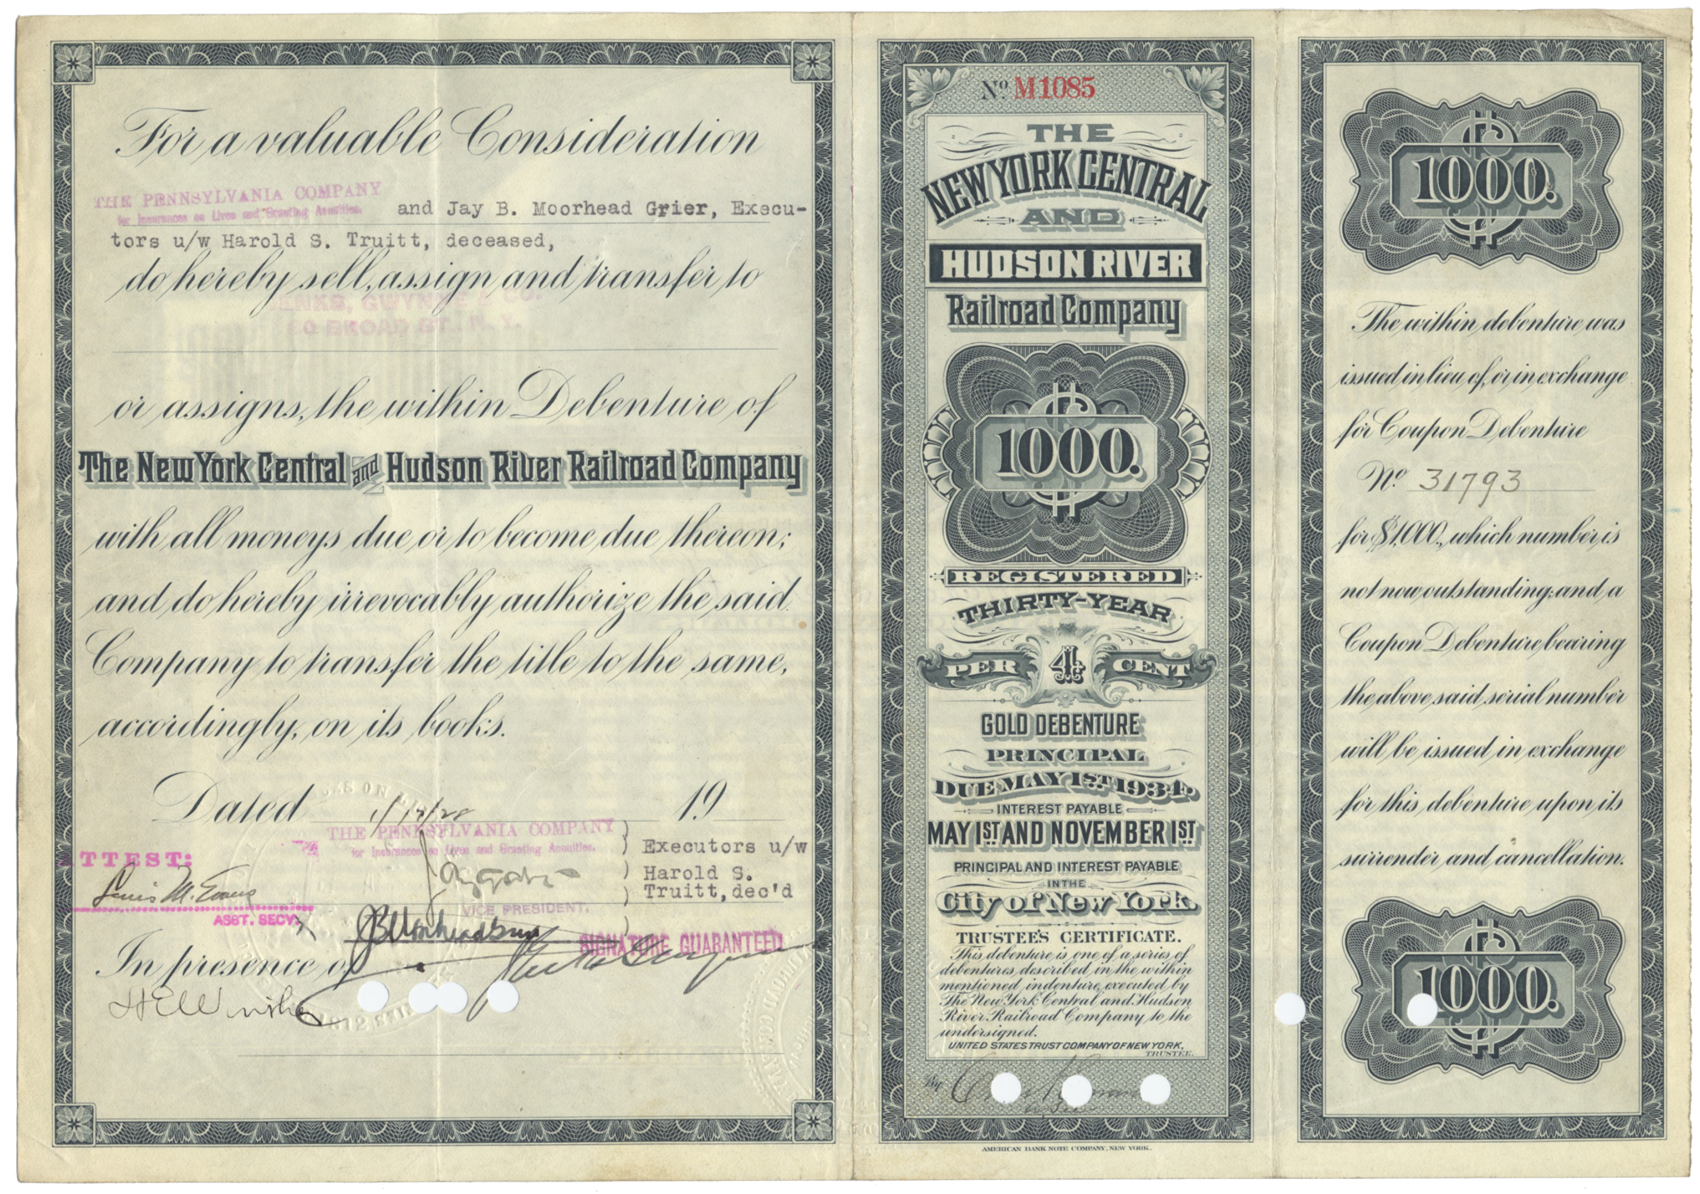 For a valuable Consideration
THE PENNSYLVANIA COMPANY
for Insurances on Lives and Granting Annuities.
and Jay B. Moorhead Grier, Execu-
tors u/w Harold S. Truitt, deceased,
do hereby sell, assign and transfer to
JENKS, GWYNNE & CO.
30 BROAD ST. N.Y.
or assigns, the within Debenture of
The New York Central and Hudson River Railroad Company
with all moneys due or to become due thereon;
and do hereby irrevocably authorize the said
Company to transfer the title to the same,
accordingly, on its books.
Dated 19
THE PENNSYLVANIA COMPANY
for Insurances on Lives and Granting Annuities.
Executors u/w
Harold S.
Truitt, dec'd
ATTEST:
Louis M. Evans
ASST. SECY.
VICE PRESIDENT.
SIGNATURE GUARANTEED
In presence of
No. M1085
THE
NEW YORK CENTRAL
AND
HUDSON RIVER
Railroad Company
1000.
REGISTERED
THIRTY-YEAR
4 PER CENT
GOLD DEBENTURE
PRINCIPAL
DUE MAY 1ST 1934.
INTEREST PAYABLE
MAY 1ST AND NOVEMBER 1ST
PRINCIPAL AND INTEREST PAYABLE
IN THE
City of New York.
TRUSTEE'S CERTIFICATE.
This debenture is one of a series of
debentures described in the within
mentioned indenture executed by
The New York Central and Hudson
River Railroad Company to the
undersigned.
UNITED STATES TRUST COMPANY OF NEW YORK,
TRUSTEE.
By
AMERICAN BANK NOTE COMPANY, NEW YORK.
1000.
The within debenture was
issued in lieu of, or in exchange
for Coupon Debenture
No. 31793
for $1,000, which number is
not now outstanding; and a
Coupon Debenture bearing
the above said serial number
will be issued in exchange
for this debenture upon its
surrender and cancellation.
1000.